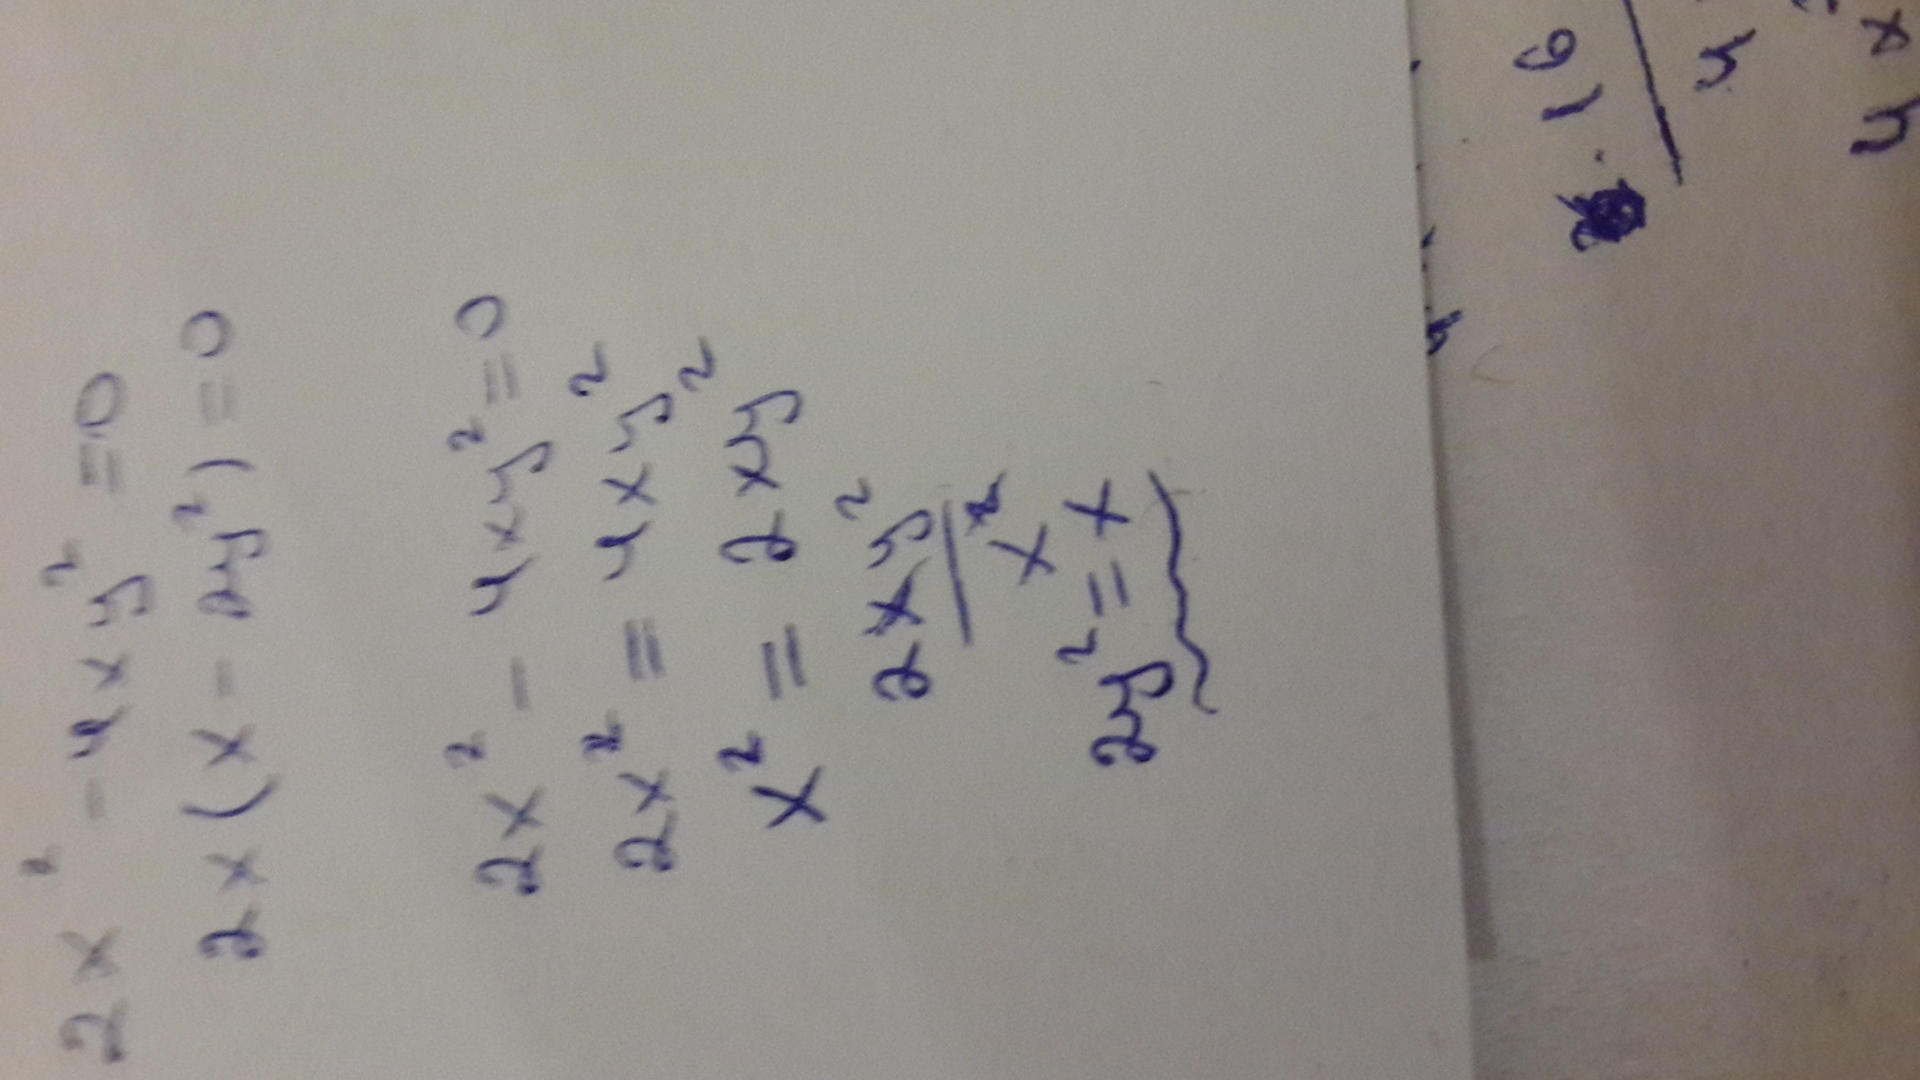 2x² - 4xy² = 0
2x(x - 2y²) = 0
2x² - 4xy² = 0
2x² = 4xy²
x² = 2xy²
2xy²
x
2y² = x